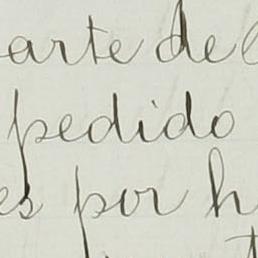 arte de
pedido
es por h